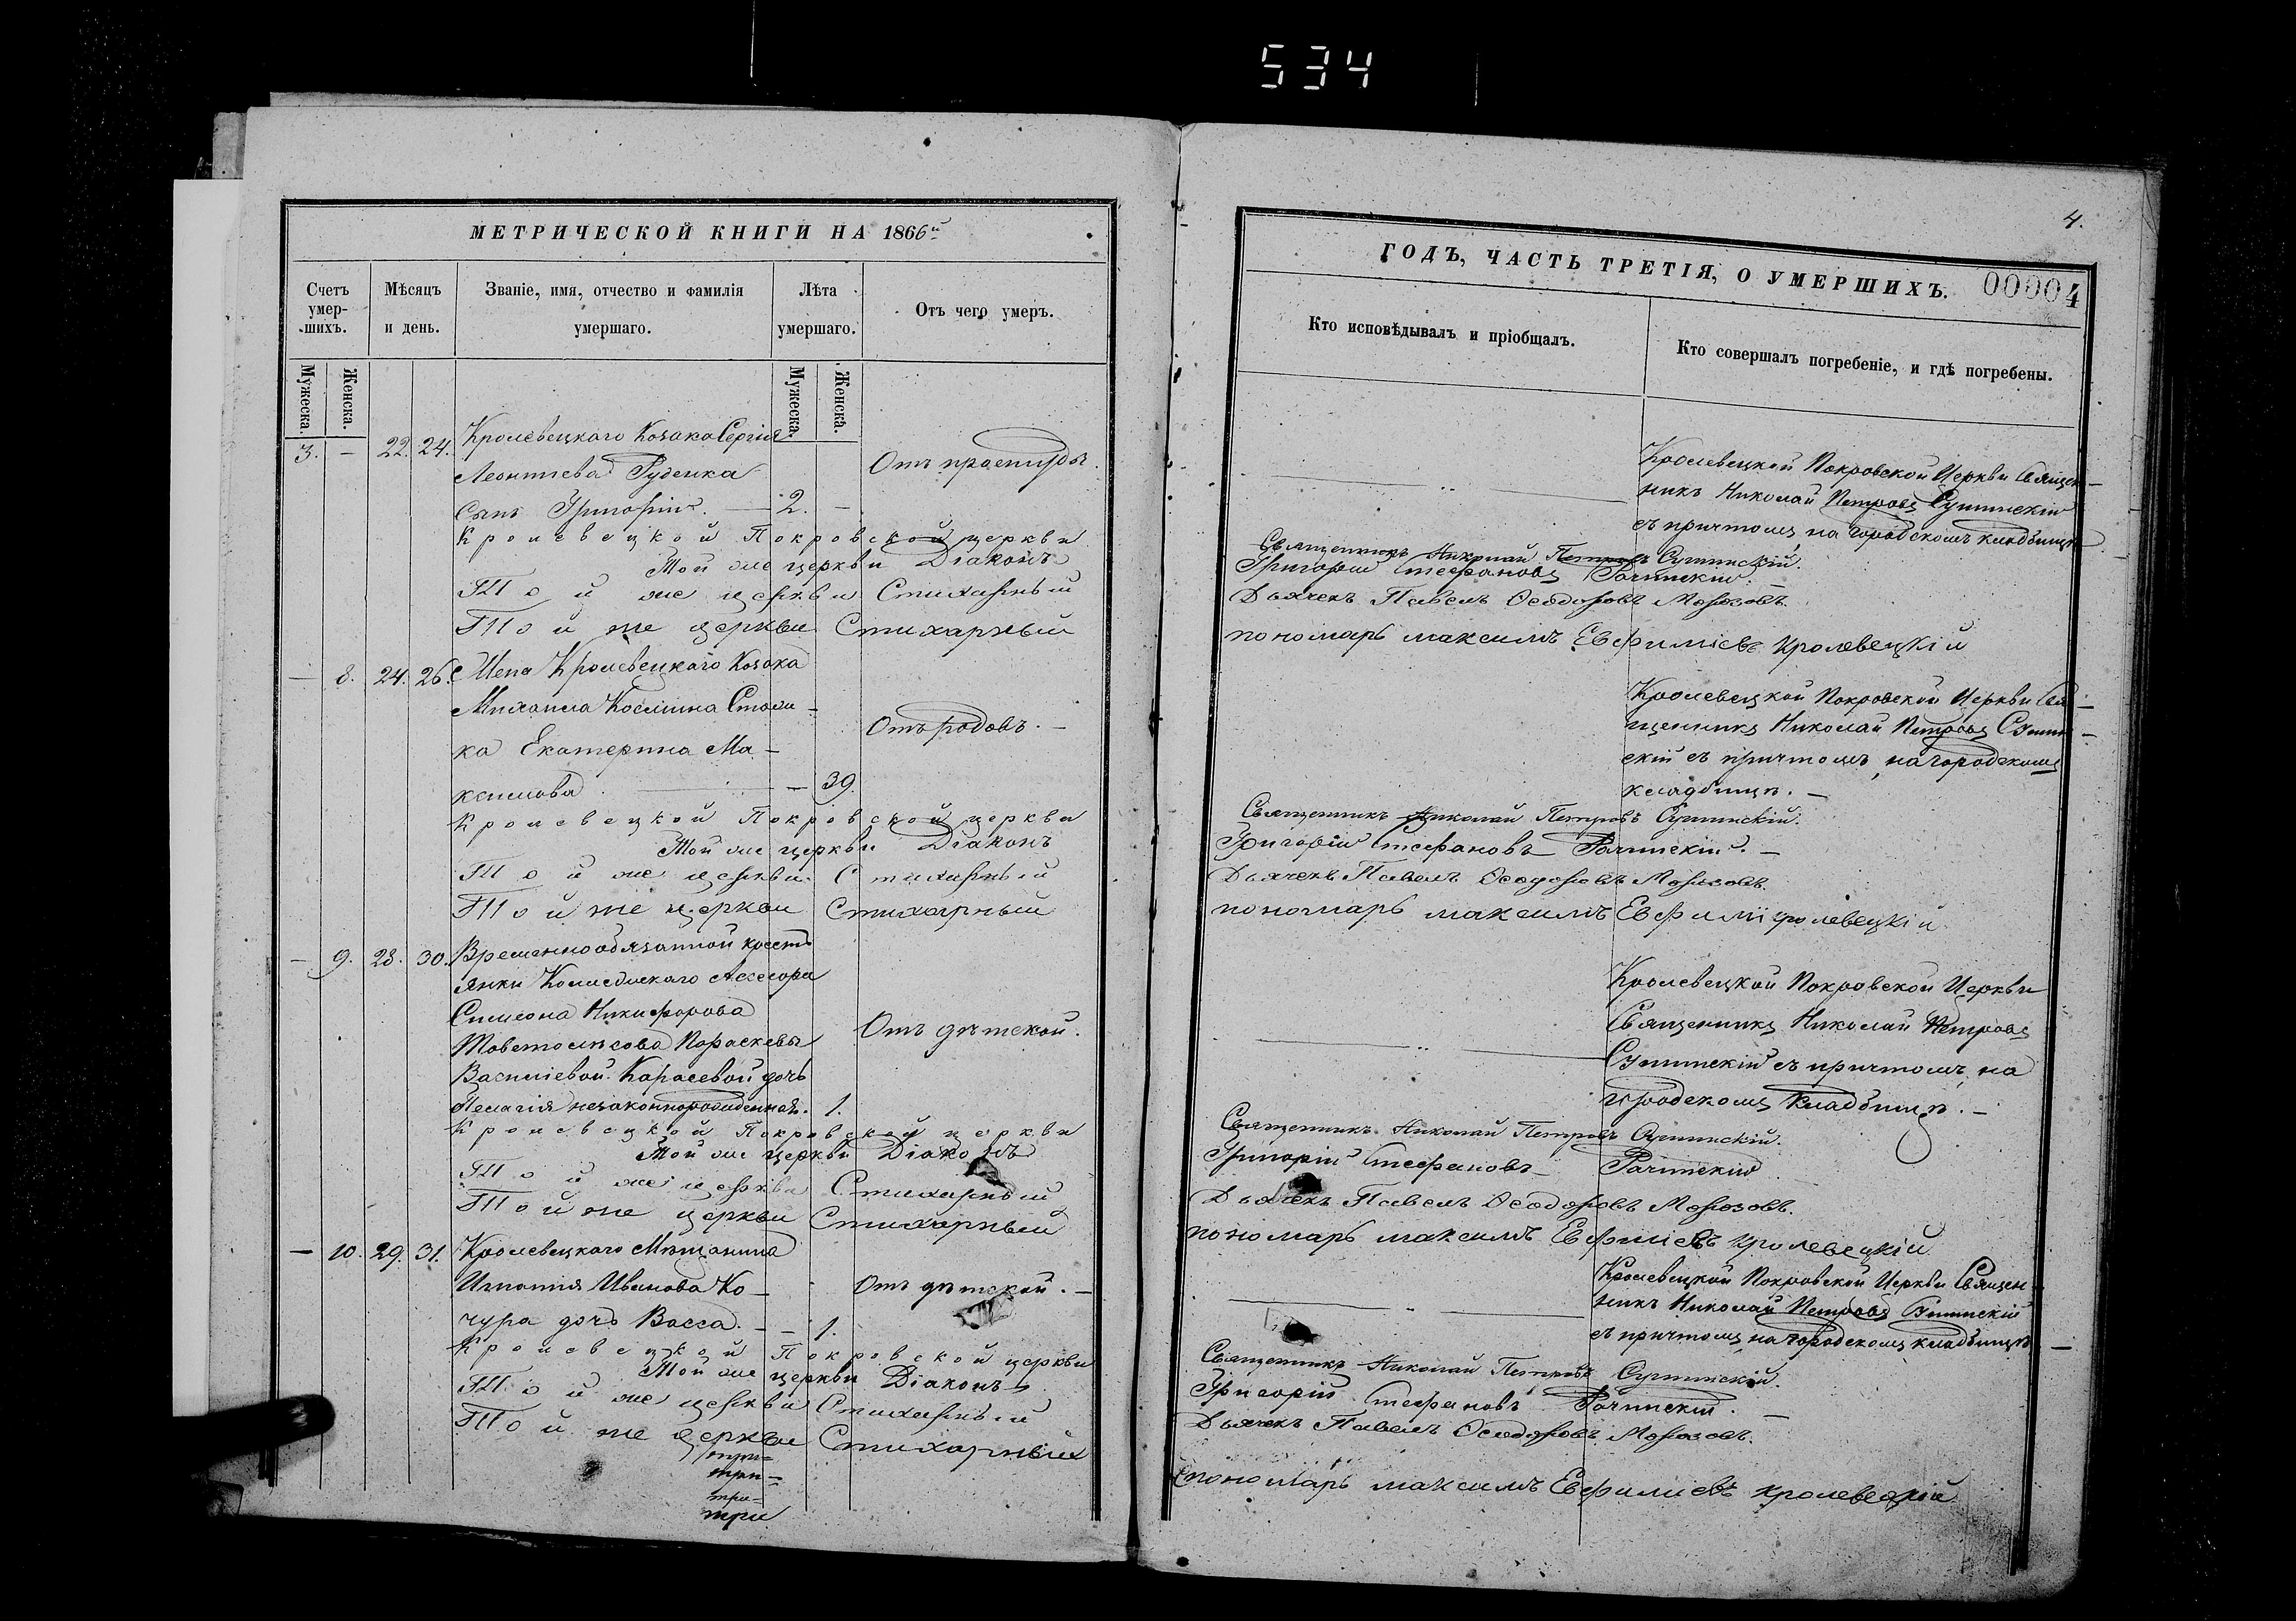 534
МЕТРИЧЕСКОЙ КНИГИ НА 1866й
Счетъ умер-шихъ.
Мѣсяцъ и день.
Званіе, имя, отчество и фамилія умершаго.
Лѣта умершаго.
Отъ чего умеръ.
Мужеска.
Женска.
Мужеска.
Женска.
3. - 22. 24. Кролевецкаго Козака Сергія
Леонтіева Руденка
Сынъ Григорій. — 2. -
Отъ простуды.
Кролевецкой Покровской церкви
Той же церкви Діаконъ
Той же церкви Стихарный
Той же церкви Стихарный
— 8. 24. 26. Жена Кролевецкаго Козака
Михаила Космина
Екатерина Ма-
ксимова — 39.
Отъ родовъ. —
Кролевецкой Покровской церкви
Той же церкви Діаконъ
Той же церкви Стихарный
Той же церкви Стихарный
— 9. 28. 30. Временнообязанной кресть
янки Колежскаго Ассесора
Симеона Никифорова
Параскевы
Василіевой Карасевой дочь
Пелагія незаконнорожденная. 1.
Отъ дѣтской.
Кролевецкой Покровской церкви
Той же церкви Діаконъ
Той же церкви Стихарный
Той же церкви Стихарный
— 10. 29. 31. Кролевецкаго Мѣщанина
Игнатія Иванова Ко-
чура дочь Васса. — - 1.
Отъ дѣтской. —
Кролевецкой Покровской церкви
Той же церкви Діаконъ
Той же церкви Стихарный
Той же церкви Стихарный
три=
три=
три=
три
4.
ГОДЪ, ЧАСТЬ ТРЕТІЯ, О УМЕРШИХЪ.
00004
Кто исповѣдывалъ и пріобщалъ.
Кто совершалъ погребеніе, и гдѣ погребены.
Кролевецкой Покровской Церкви Священ-
никъ Николай Петровъ Сушинскій
съ причтомъ, на городскомъ кладбищѣ
Священникъ Николай Петровъ Сушинскій.
Григорій Стефановъ Рачинскій. —
Дьячекъ Павелъ Ѳеодоровъ Морозовъ.
пономарь максимъ Евфиміевъ кролевецкій
Кролевецкой Покровской Церкви Свя-
щенникъ Николай Петровъ Сушин-
скій съ причтомъ, на городскомъ
кладбищѣ. —
Священникъ Николай Петровъ Сушинскій.
Григорій Стефановъ Рачинскій. —
Дьячекъ Павелъ Ѳеодоровъ Морозовъ.
пономарь максимъ Евфимі кролевецкій
Кролевецкой Покровской Церкви
Священникъ Николай Петровъ
Сушинскій съ причтомъ, на
городскомъ кладбищѣ. —
Священникъ Николай Петровъ Сушинскій.
Григорій Стефановъ Рачинскій
Дьячекъ Павелъ Ѳеодоровъ Морозовъ.
пономарь максимъ Евфиміевъ кролевецкій
Кролевецкой Покровской Церкви Священ-
никъ Николай Петровъ Сушинскій
съ причтомъ, на городскомъ кладбищѣ. —
Священникъ Николай Петровъ Сушинскій.
Григорій Стефановъ Рачинскій. —
Дьячекъ Павелъ Ѳеодоровъ Морозовъ.
пономарь максимъ Евфиміевъ кролевецкій